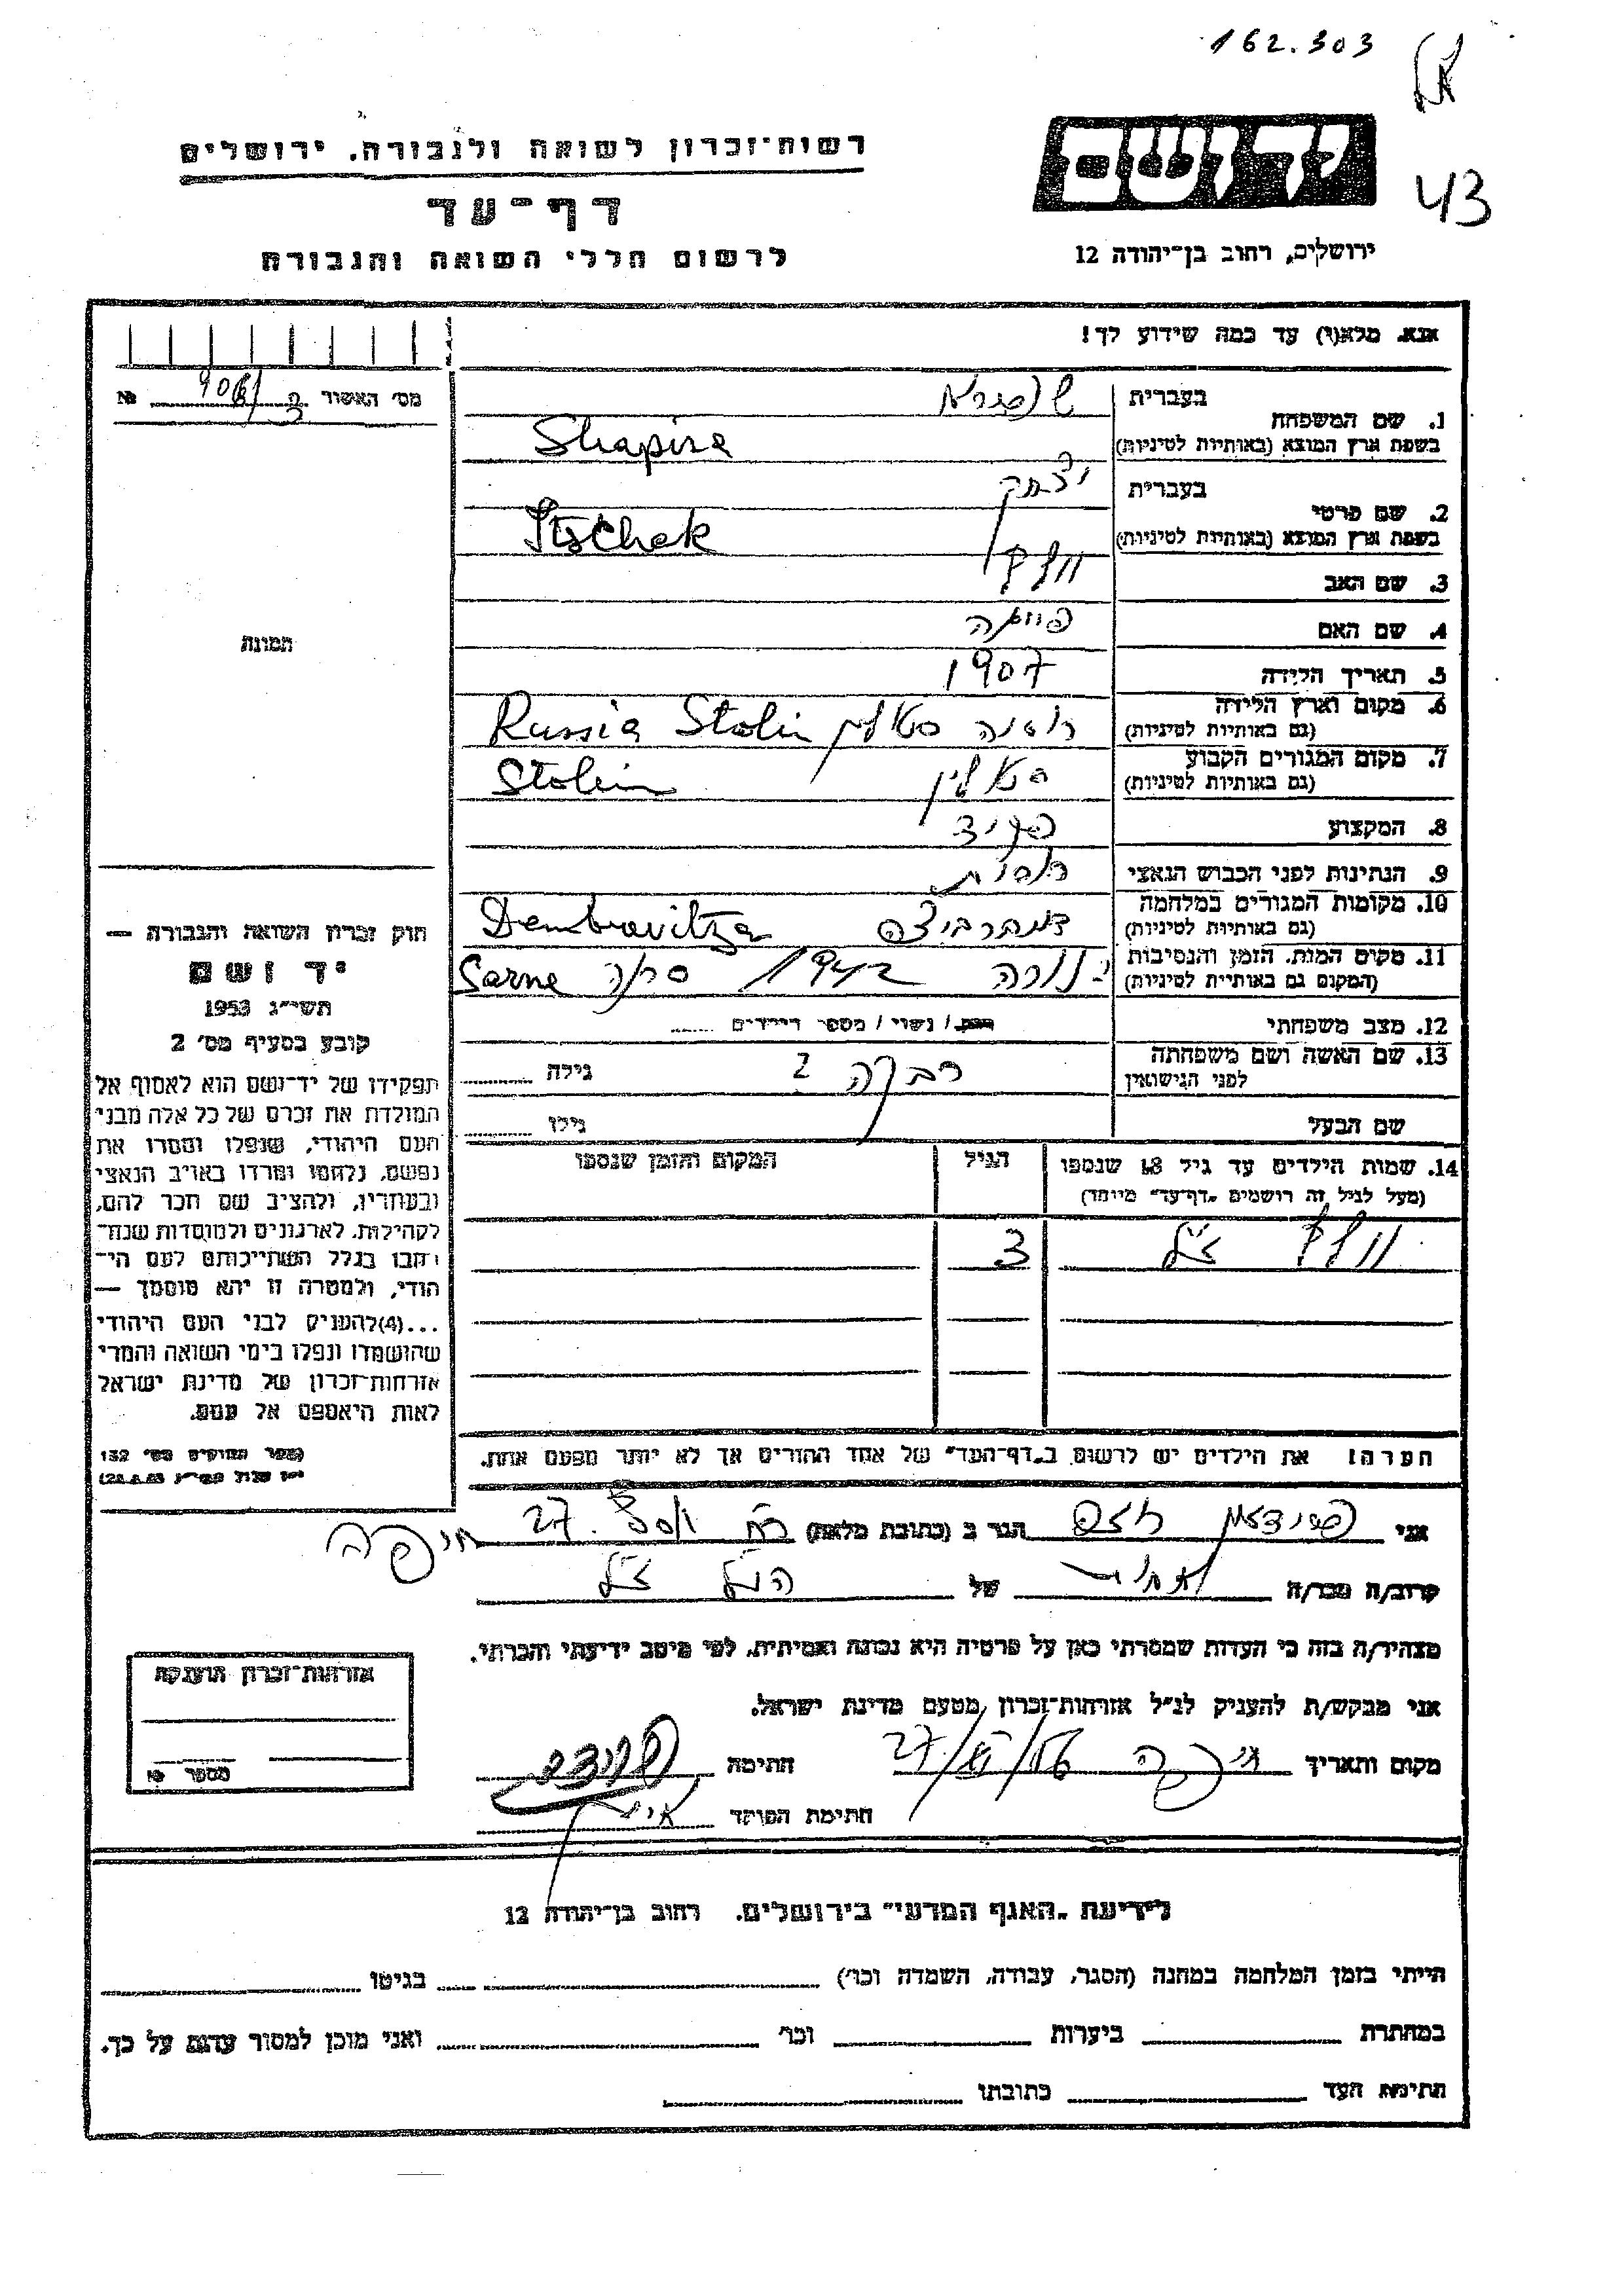 162.303
43
רשות־זכרון לשואה ולגבורה, ירושלים
דף־עד
לרשום חללי השואה והגבורה
ידושם
ירושלים, רחוב בן־יהודה 12
אנא, מלא(י) עד כמה שידוע לך!
מס׳ האשור
№
תמונת
1. שם המשפחה
בעברית שפירא
בשפת ארץ המוצא (באותיות לטיניות) Shapira
2. שם פרטי
בעברית יצחק
בשפת ארץ המוצא (באותיות לטיניות) Itschek
3. שם האב וולף
4. שם האם
5. תאריך הלידה 1907
6. מקום וארץ הלידה
(גם באותיות לטיניות) רוסיה סטולין Russia Stolin
7. מקום המגורים הקבוע
(גם באותיות לטיניות) סטולין Stolin
8. המקצוע
9. הנתינות לפני הכבוש הנאצי
10. מקומות המגורים במלחמה
(גם באותיות לטיניות) דומברביצה Dembrovitza
11. מקום המות, הזמן והנסיבות
(המקום גם באותיות לטיניות) 1942 סרנה Sarne
12. מצב משפחתי רווק / נשוי / מספר הילדים
13. שם האשה ושם משפחתה
לפני הנישואין רבקה ? גילה
שם הבעל גילו
14. שמות הילדים עד גיל 18 שנספו
(מעל לגיל זה רושמים „דף־עד” מיוחד)
הגיל
המקום והזמן שנספו
וולף ז״ל 3
הערה: את הילדים יש לרשום ב„דף־העד” של אחד ההורים אך לא יותר מפעם אחת.
חוק זכרון השואה והגבורה —
יד ושם
תשי״ג 1953
קובע בסעיף מס׳ 2
תפקידו של יד־ושם הוא לאסוף אל
המולדת את זכרם של כל אלה מבני
העם היהודי, שנפלו ומסרו את
נפשם, נלחמו ומרדו באויב הנאצי
ובעוזריו, ולהציב שם וזכר להם,
לקהילות, לארגונים ולמוסדות שנח־
רבו בגלל השתייכותם לעם הי־
הודי, ולמטרה זו יהא מוסמך —
...(4) להעניק לבני העם היהודי
שהושמדו ונפלו בימי השואה והמרי
אזרחות־זכרון של מדינת ישראל
לאות היאספם אל עמם.
(ספר החוקים מס׳ 132
אני הגר ב (כתובת מלאה) רח 27 חיפה
קרוב/ה מכר/ה של הנ״ל ז״ל
מצהיר/ה בזה כי העדות שמסרתי כאן על פרטיה היא נכונה ואמיתית, לפי מיטב ידיעתי והכרתי.
אני מבקש/ת להעניק לנ״ל אזרחות־זכרון מטעם מדינת ישראל.
מקום ותאריך חיפה חתימה
חתימת הפוקד
אזרחות־זכרון הוענקה
מספר №
לידיעת „האגף המדעי” בירושלים, רחוב בן־יהודה 12
הייתי בזמן המלחמה במחנה (הסגר, עבודה, השמדה וכו׳) בגיטו
במחתרת ביערות וכו׳ ואני מוכן למסור עדות על כך.
חתימת העד כתובתו